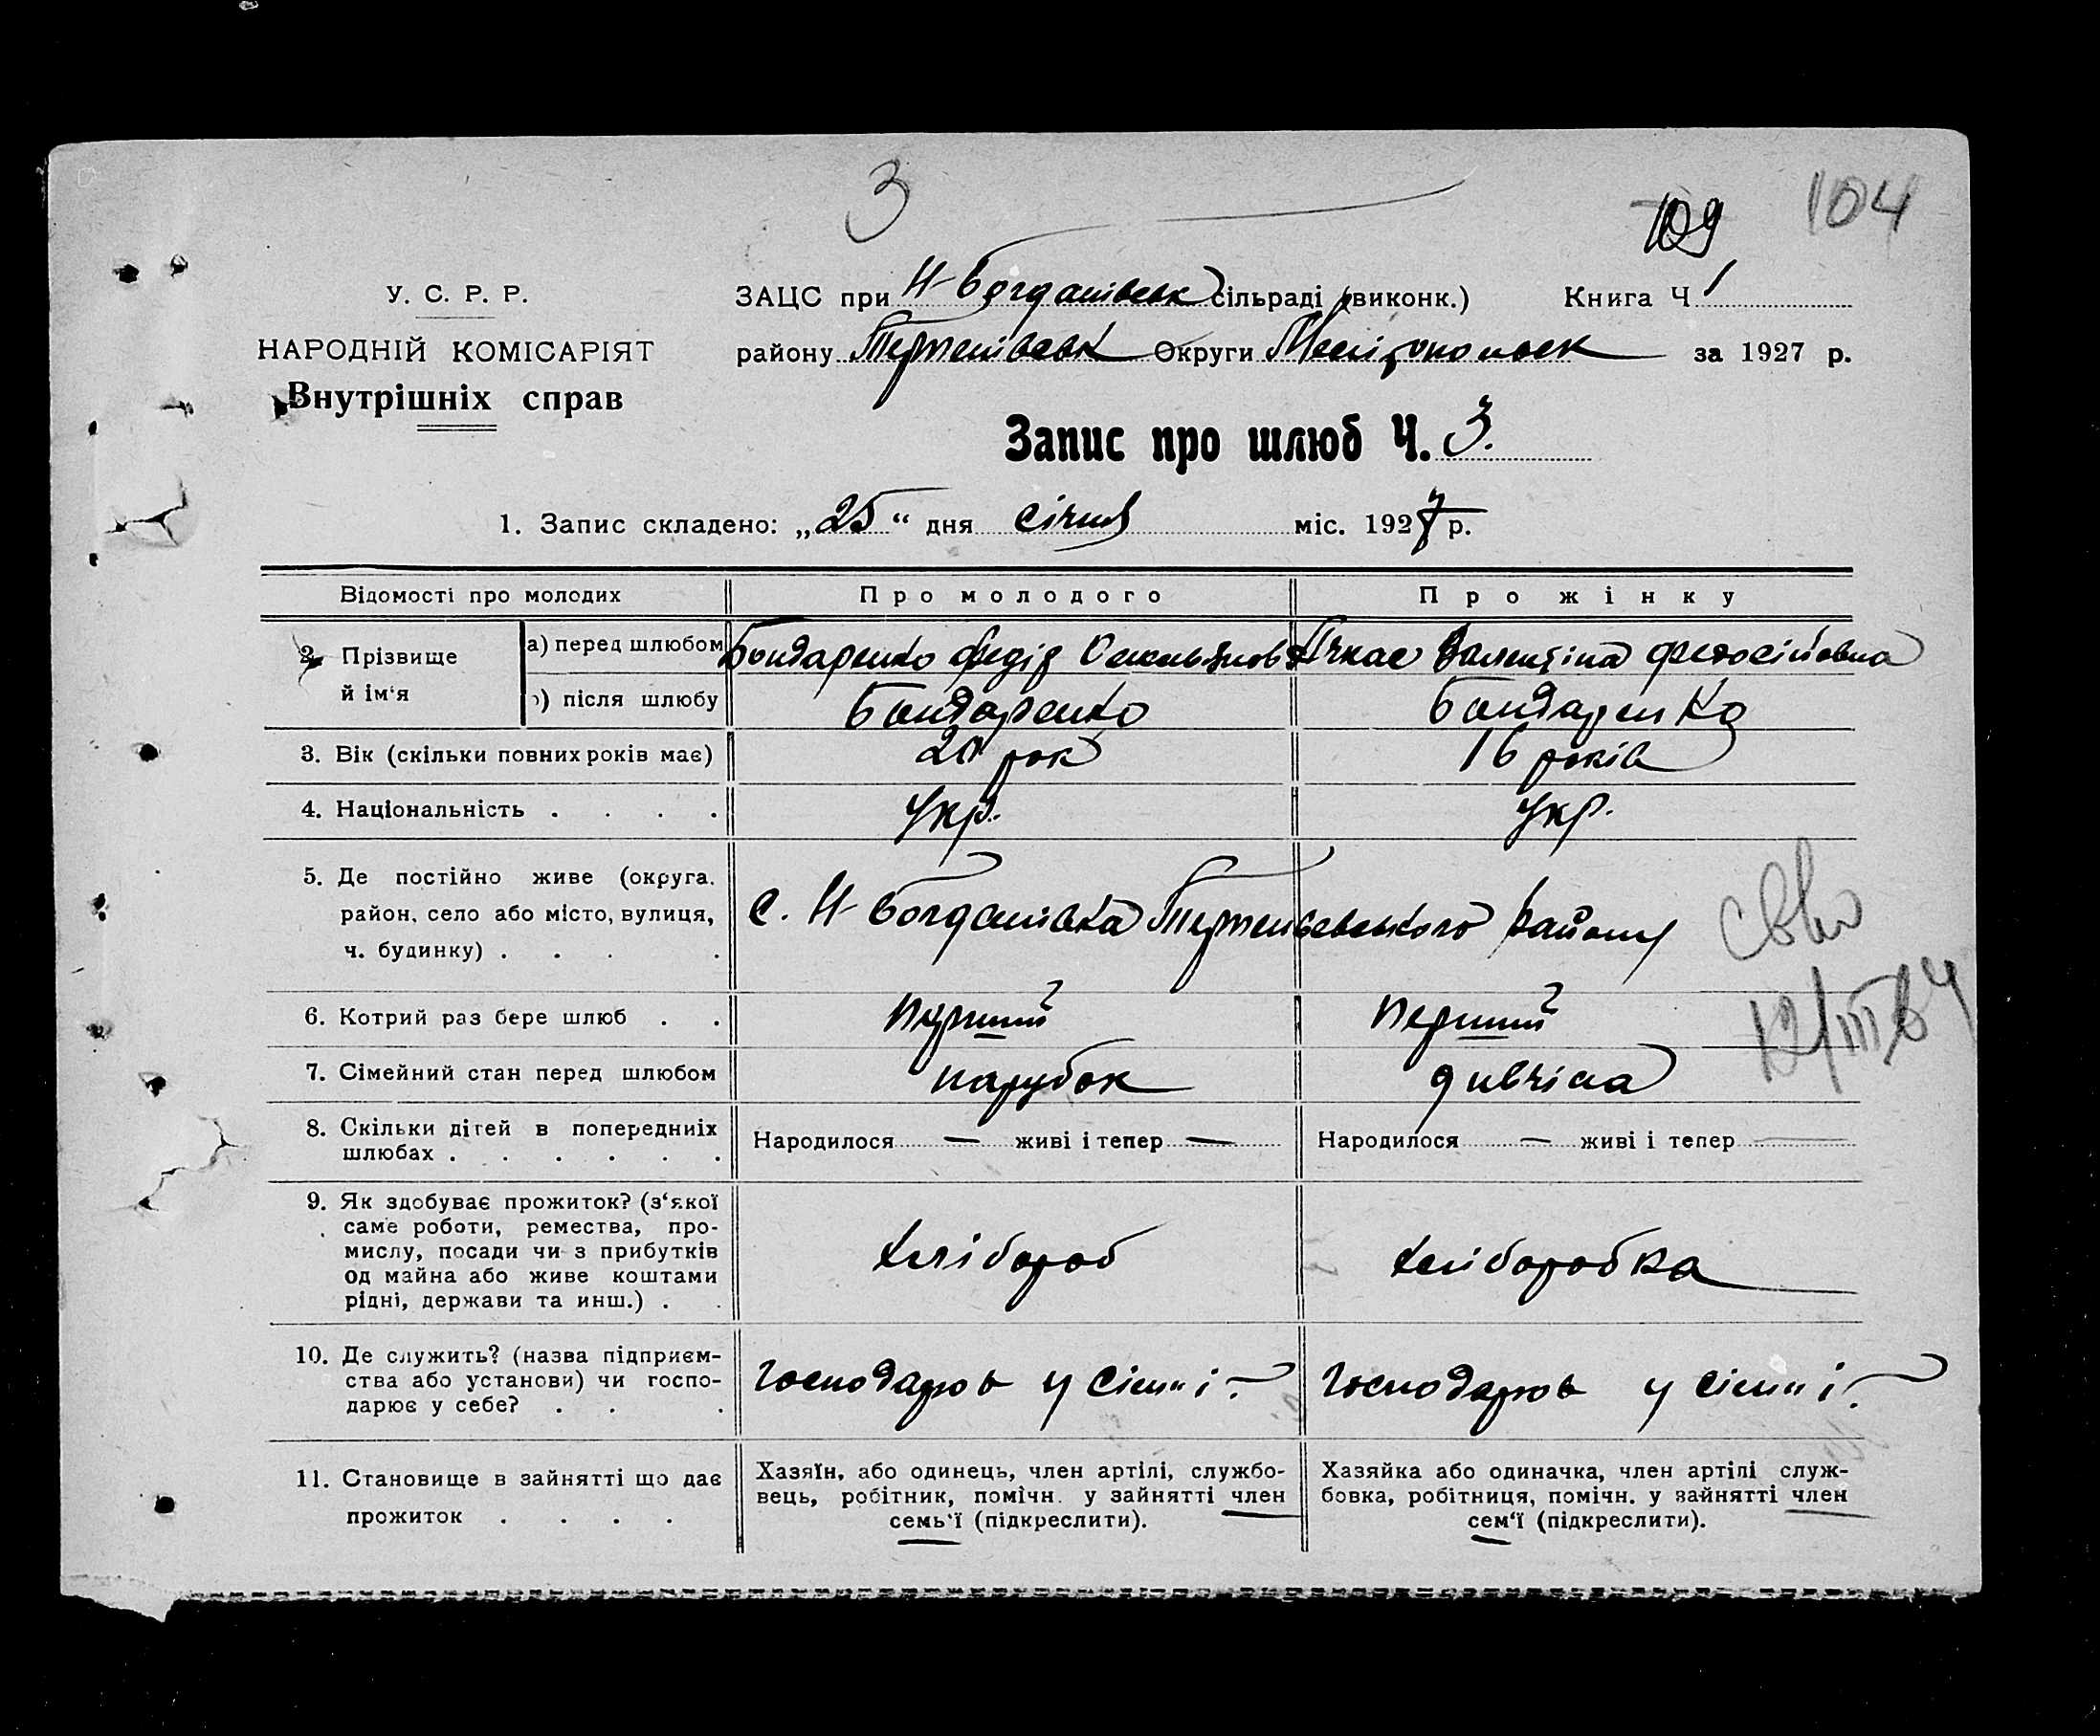 3
109
104
У. С. Р. Р.
НАРОДНІЙ КОМІСАРІЯТ
Внутрішніх справ
ЗАЦС при Н-Богданівськ сільраді (виконк.) Книга Ч 1
району Терпенівськ Округи Мелітопольськ за 1927 р.
Запис про шлюб Ч. 3.
1. Запис складено: „25“ дня січня міс. 1927 р.
Відомості про молодих
Про молодого
Про жінку
2. Прізвище й ім‘я
а) перед шлюбом
Бондаренко Федір
Валентіна Федосійовна
б) після шлюбу
Бондаренко
Бондаренко
3. Вік (скільки повних років має)
рок
16 років
4. Національність . . . .
Укр.
Укр.
5. Де постійно живе (округа,
район, село або місто, вулиця,
ч. будинку) . . . .
с. Н-Богданівка району
12/III 64
6. Котрий раз бере шлюб . .
перший
перший
7. Сімейний стан перед шлюбом
парубок
дивчіна
8. Скільки дітей в попередниіх
шлюбах . . . . . .
Народилося — живі і тепер —
Народилося — живі і тепер —
9. Як здобуває прожиток? (з‘якої
саме роботи, ремества, про-
мислу, посади чи з прибутків
од майна або живе коштами
рідні, держави та инш.) . .
хлібороб
хліборобка
10. Де служить? (назва підприєм-
ства або установи) чи госпо-
дарює у себе? . . .
господарює у сімні
господарює у сімні
11. Становище в зайнятті що дає
прожиток . . . .
Хазяїн, або одинець, член артілі, службо-
вець, робітник, помічн. у зайнятті член
семь‘ї (підкреслити).
Хазяйка або одиначка, член артілі служ-
бовка, робітниця, помічн. у зайнятті член
сем‘ї (підкреслити).